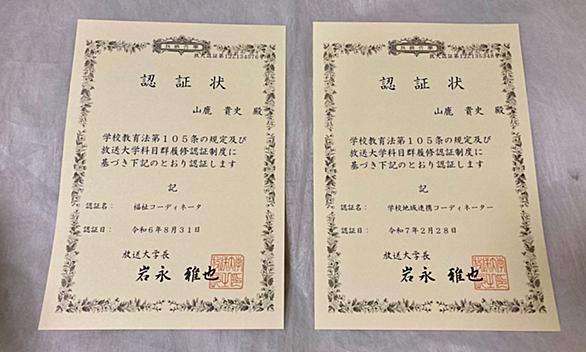 認証状
山鹿 貴史 殿
学校教育法第105条の規定及び
放送大学科目群履修認証制度に
基づき下記のとおり認証します
記
認証名: 福祉コーディネータ
認証日: 令和6年8月31日
放送大学長
岩永 雅也
認証状
山鹿 貴史 殿
学校教育法第105条の規定及び
放送大学科目群履修認証制度に
基づき下記のとおり認証します
記
認証名: 学校地域連携コーディネーター
認証日: 令和7年2月28日
放送大学長
岩永 雅也